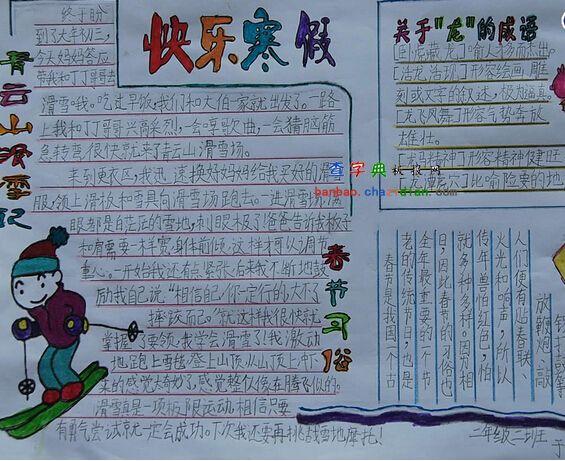 快乐寒假
青云山滑雪记
终于盼
到了大年初三,
今天妈妈答应
带我和丁丁哥哥去
滑雪哦。吃过早饭,我们和大伯一家就出发了。一路
上我和丁丁哥哥兴高采烈,一会哼歌曲,一会猜脑筋
急转弯,很快就来了青云山滑雪场。
来到更衣区,我迅速换好妈妈给我买好的滑雪
服,领上滑板和雪具向滑雪场跑去。一进滑雪场,满
眼都是白茫茫的雪地,刺眼极了!爸爸告诉我板子
和肩需要一样宽,身体前倾,这样才可以调节
重心。一开始我还有点紧张,后来我不断地鼓
励我自己说:“相信自己,你一定行的,大不了
摔跤而已。”就这样很快就
掌握了要领,我学会滑雪了!我激动
地跑上雪毯,登上山顶,从山顶上冲下
来的感觉太奇妙了,感觉整似像在腾飞似的。
滑雪真是一项极限运动,相信只要
有勇气尝试就一定会成功。下次我还要再挑战雪地摩托!
关于"龙"的成语
[卧虎藏龙]喻人才扬而杰出。
[活龙活现]形容绘画、雕
刻或文字的叙述,极为逼真。
[龙飞凤舞]形容气势奔放
雄壮。
[龙马精神]形容精神健旺
[龙潭虎穴]比喻险要的地
查字典手抄报网
banbao.chazidian.com
春节习俗
春节是我国一个古
老的传统节日,也是
全年最重要的一个节
日,因此春节的习俗也
就多种多样。因为相
传年兽怕红色,怕
火光和响声,所以
人们便有贴春联、
放鞭炮、敲
二年级二班王